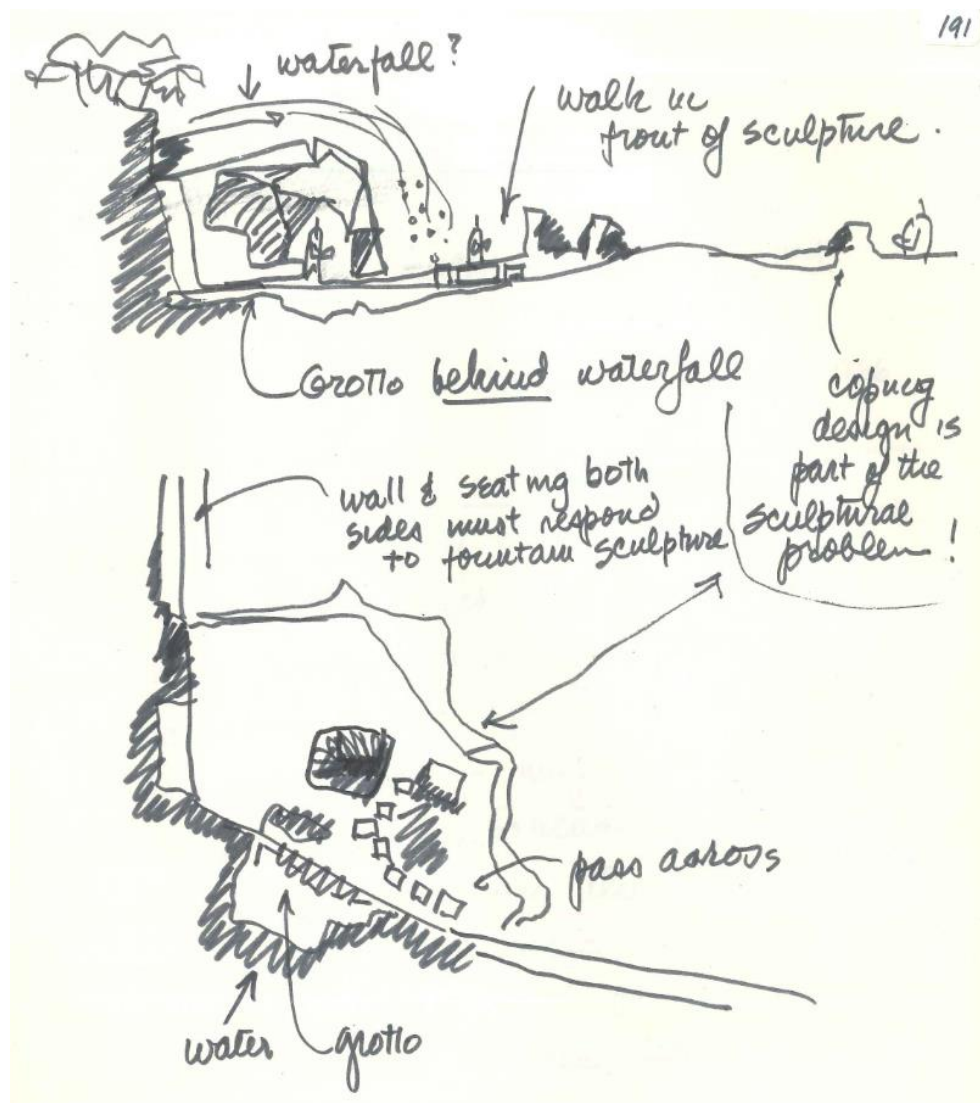 191
waterfall?
walk in
front of sculpture.
Grotto behind waterfall
coping
design is
part of the
sculptural
problem!
wall & seating both
sides must respond
to fountain sculpture
pass across
water
grotto